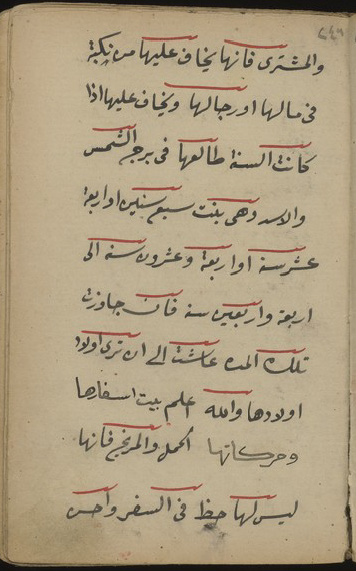 ٤٤٦
والمشترى فانها يخاف عليها من نكبة
فى مالها او رجالها ويخاف عليها اذا
كانت السنة طالعها فى برج الشمس
والاسد وهى بنت سبع سنين او اربعة
عشر سنة او اربعة وعشرون سنة الى
اربعة واربعين سنة فان جاوزت
تلك المدة عاشت الى ان ترى اولاد
اولادها والله اعلم بيت اسفارها
وحركاتها الحمل والمريخ فانها
ليس لها حظ فى السفر واحسن